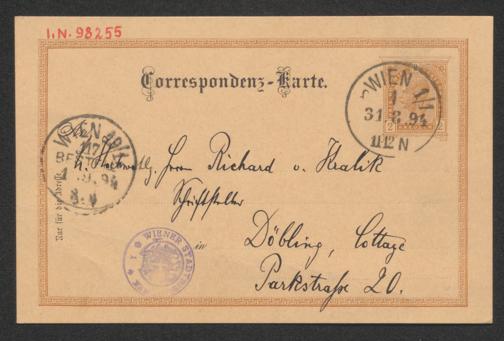 I.N. 98255
Correspondenz-Karte.
WIEN 1/1
1
31.8.94
11-12 N
2
WIEN 19/1
117
.9.94
8.V
Herrn Richard v. Kralik
Schriftsteller
in Döbling, Cottage
Parkstraße 20.
Nur für die Adresse.
WIENER STADT